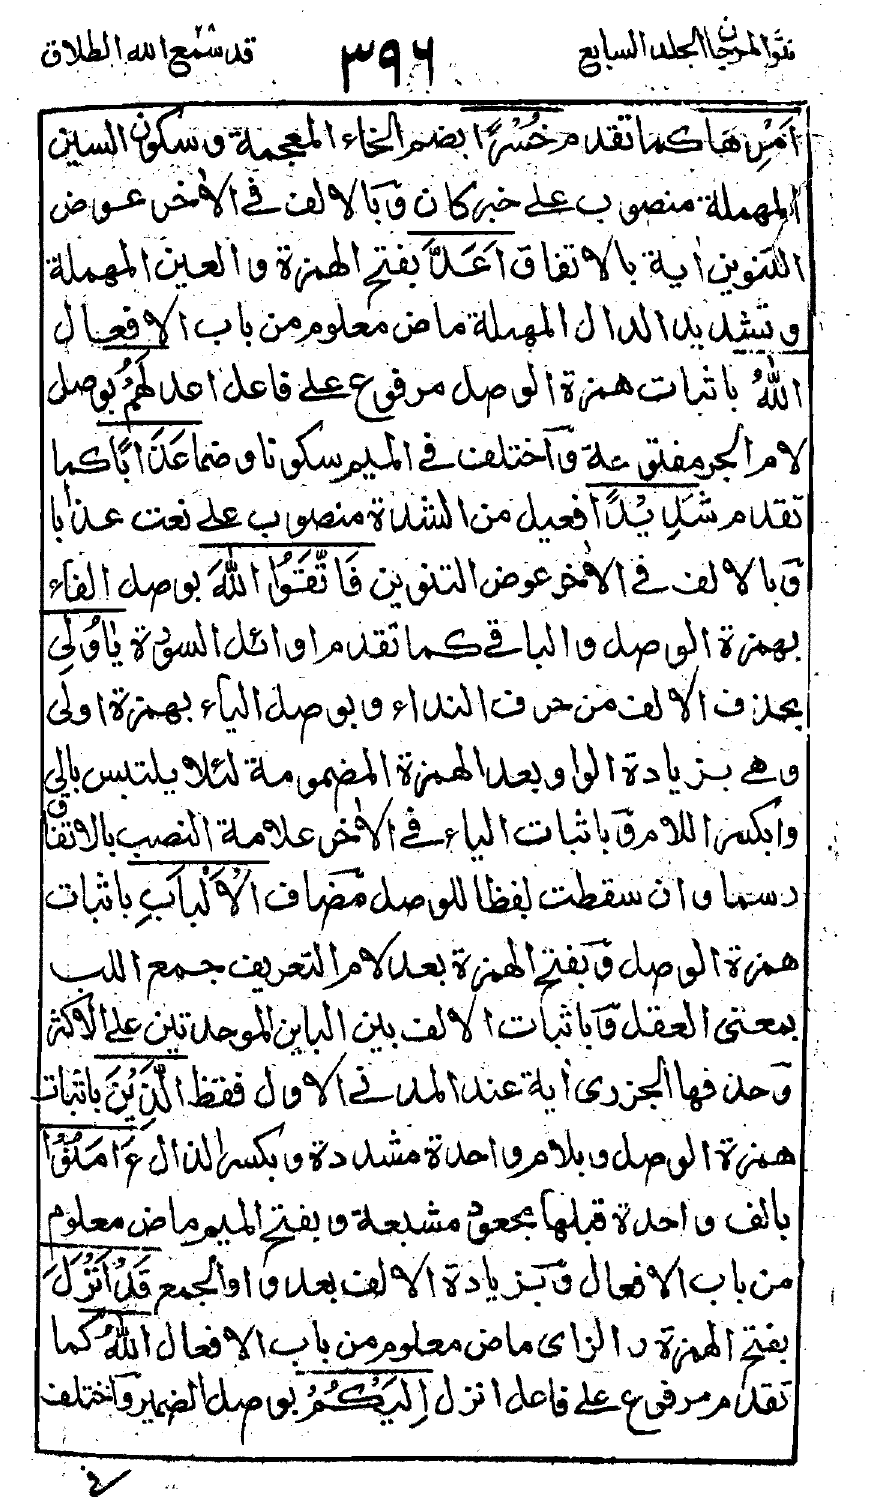 نثر المرجان الجلد السابع ٣٩٦ قد سمع الله ٢٨ الطلاق
اَمْرِهَا كما تقدم خُسْرًا بضم الخاء المعجمة و سكون السين
المهملة منصوب على خبر كان وَ بالالف فى الاٰخر عوض
التنوين اٰية بالاتفاق اَعَدَّ بفتح الهمزة و العين المهملة
و تشديد الدال المهملة ماض معلوم من باب الافعال
اللّٰهُ باثبات همزة الوصل مرفوع على فاعل اعد لَهُمْ بوصل
لام الجر مفتوحة وَ اختلف فى الميم سكونا و ضما عَذَابًا كما
تقدم شَدِيْدًا فعيل من الشدة منصوب على نعت عذابا
وَ بالالف فى الاٰخر عوض التنوين فَاتَّقُوا اللّٰهَ بوصل الفاء
بهمزة الوصل و الباقى كما تقدم اوائل السورة يٰاُولِى
بحذف الالف من حرف النداء و بوصل الياء بهمزة اولى
و هى بزيادة الواو بعد الهمزة المضمومة لئلا يلتبس بالى
و بكسر اللام وَ باثبات الياء فى الاٰخر علامة النصب بالاتفاق
رسما و ان سقطت لفظا للوصل مضاف الْاَلْبَابِ باثبات
همزة الوصل وَ بفتح الهمزة بعد لام التعريف جمع اللب
بمعنى العقل وَ باثبات الالف بين البائين الموحدتين على الاكثر
وَ حذفها الجزرى اٰية عند المدنى الاول فقط الَّذِيْنَ باثبات
همزة الوصل و بلام واحدة مشددة و بكسر الذال ءَامَنُوْا
بالف واحدة قبلها مجعودة مشبعة و بفتح الميم ماض معلوم
من باب الافعال وَ بزيادة الالف بعد واو الجمع قَدْ اَنْزَلَ
بفتح الهمزة و الزاى ماض معلوم من باب الافعال اللّٰهُ كما
تقدم مرفوع على فاعل انزل اِلَيْكُمْ بوصل الضمير وَ اختلف
فى